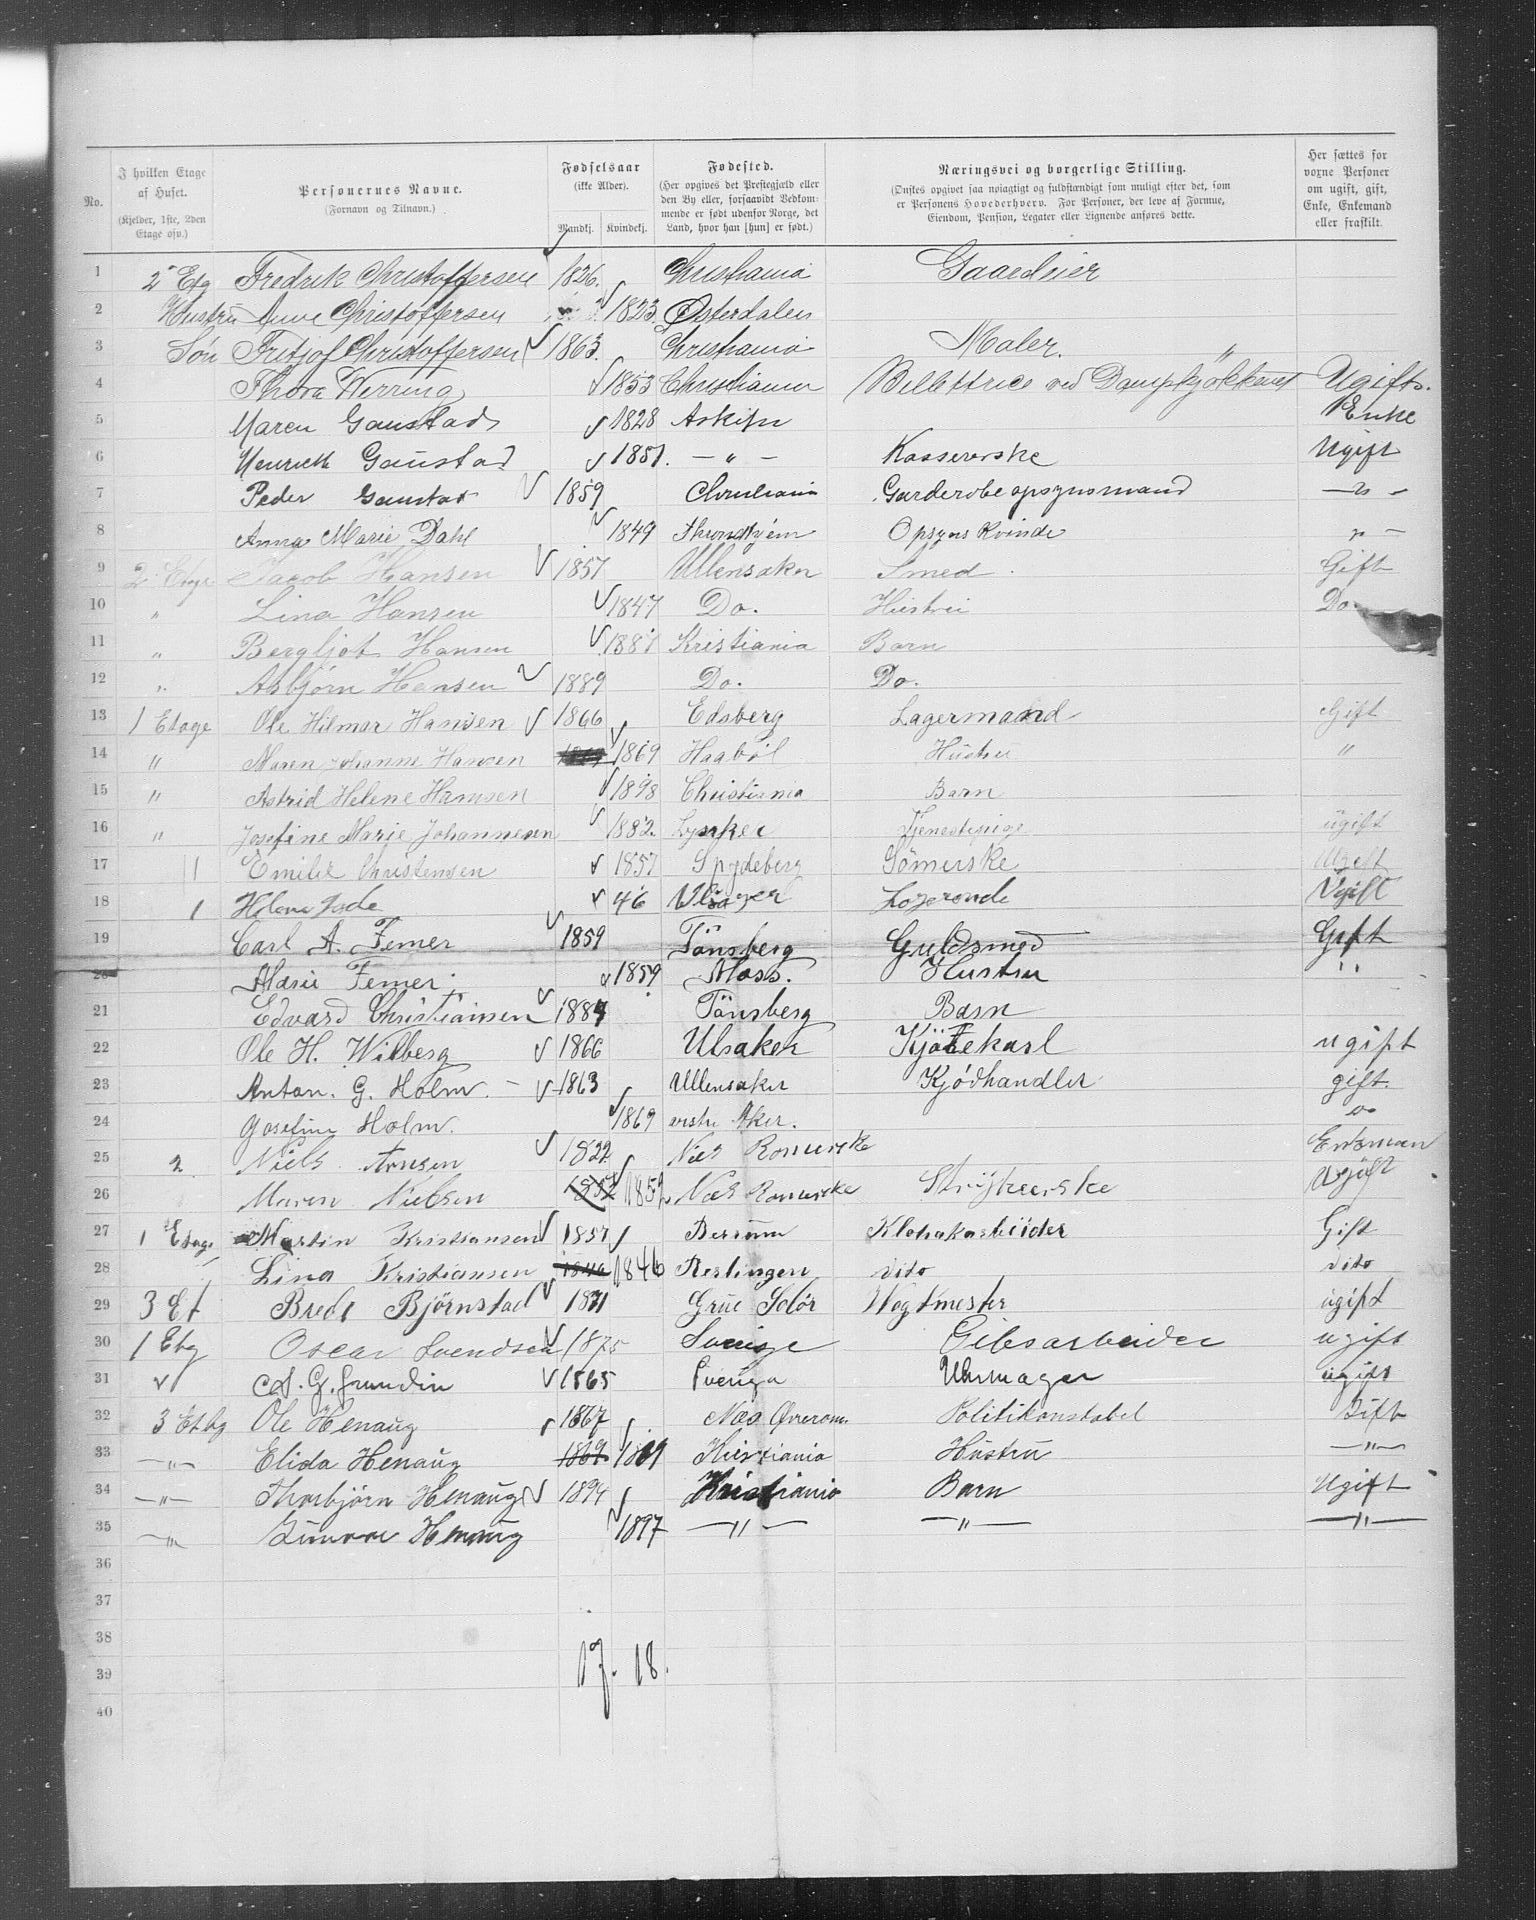 No.
I hvilken Etage af Huset. (Kjelder, 1ste, 2den Etage osv.)
Personernes Navne. (Fornavn og Tilnavn.)
Fødselsaar (ikke Alder). Mandkj. Kvindekj.
Fødested. (Her opgives det Prestegjæld eller den By eller, forsaavidt Vedkommende er født udenfor Norge, det Land, hvor han [hun] er født.)
Næringsvei og borgerlige Stilling. (Ønskes opgivet saa nøiagtigt og fuldstændigt som muligt efter det, som er Personens Hovederhverv. For Personer, der leve af Formue, Eiendom, Pension, Legater eller Lignende anføres dette.)
Her sættes for voxne Personer om ugift, gift, Enke, Enkemand eller fraskilt.
1 2 Etg Fredrik Christoffersen 1826. Christiania Gaardeier
2 Hustru Anne Christoffersen 1823 Østerdalen
3 Søn Fritjof Christoffersen 1863. Christiania Maler.
4 Thora Werring 1853 Christiania ved Dampkjøkkenet Ugift.
5 Maren Gaustad 1828 Askim Enke
6 Henriette Gaustad 1851. — " — Kassererske Ugift
7 Peder Gaustad 1859 Christiania Garderobeopsynsmand — " —
8 Anna Marie Dahl 1849 Throndhjem Opsyns Kvinde " —
9 2 Etage Jacob Hansen 1857 Ullensaker Smed Gift
10 " Lina Hansen 1847 Do. Hustru Do.
11 " Bergljot Hansen 1887 Kristiania Barn
12 " Asbjørn Hansen 1889 Do. Do.
13 1 Etage Ole Hilmar Hansen 1866 Edsberg Lagermand Gift
14 " Maren Johanne Hansen 1869 Haabøl Hustru "
15 " Astrid Helene Hansen 1898 Christiania Barn
16 " Josefine Marie Johannesen 1882. Lysaker Tjenestepige ugift
17 1 Emilie Christensen 1857 Spydeberg Sömerske Ugift
18 1 Helene 46 Logerende Ugift
19 Carl A. Femer 1859 Tönsberg Guldsmed Gift
20 Marie Femer. 1859 Moss. Hustru "
21 Edvard Christiansen 1884 Tönsberg Barn
22 Ole H. Wilberg 1866 Ulsaker Kjötekarl ugift
23 Anton. G. Holm. 1863 Ullensaker Kjødhandler gift.
24 Josefine Holm. 1869 vestre Aker. do
25 2 Niels Arnsen 1822 Nes Romerske Enkeman
26 Maren Nielsen 1852 1852 Næs Romerske Strykerske Ugift
27 1 Etage Martin Kristiansen 1857 Berrum Kloakarbeider Gift
28 " Lina Kristiansen 1846 1846 Rerlingen dito dito
29 3 Et Brede Björnstad 1871 Grue Solør Vogtmester ugift
30 1 Etg Oscar Svendsen 1875 Sverige Gibsarbeider ugift
31 " G. Grundin 1865 Sveriga Uhrmager ugift
32 3 Etag Ole Henaug 1867 Næs Øvrerom. Politikonstabel Gift
33 — " — Elida Henaug 1869 1869 Kristiania Hustru — " —
34 — " — Thorbjørn Henaug 1894 Kristiania Barn Ugift
35 — " — Henaug 1897 — " — — " — — " —
36
37
38
17. 18.
39
40